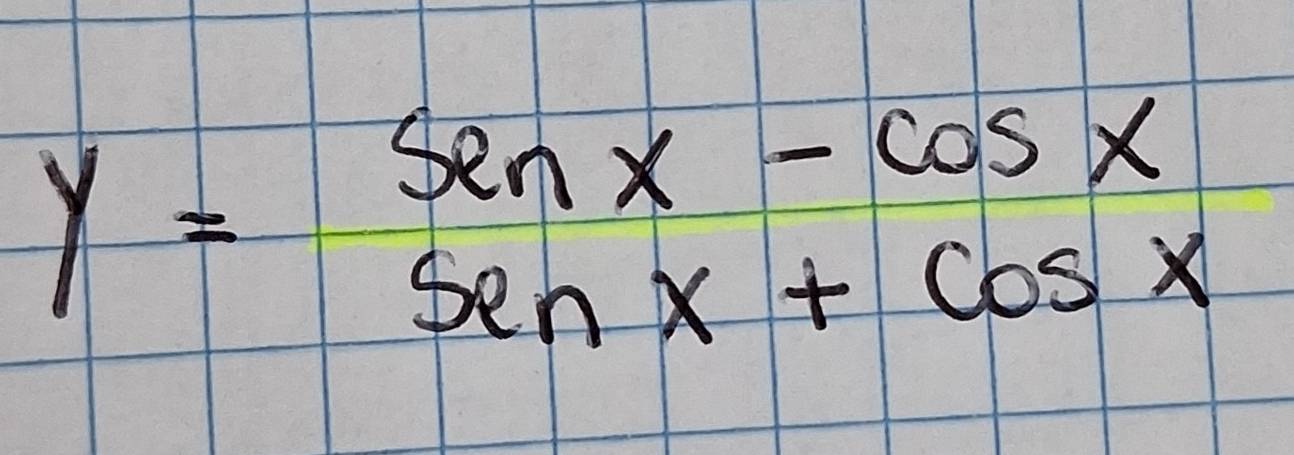 y = sen x - cos x
sen x + cos x